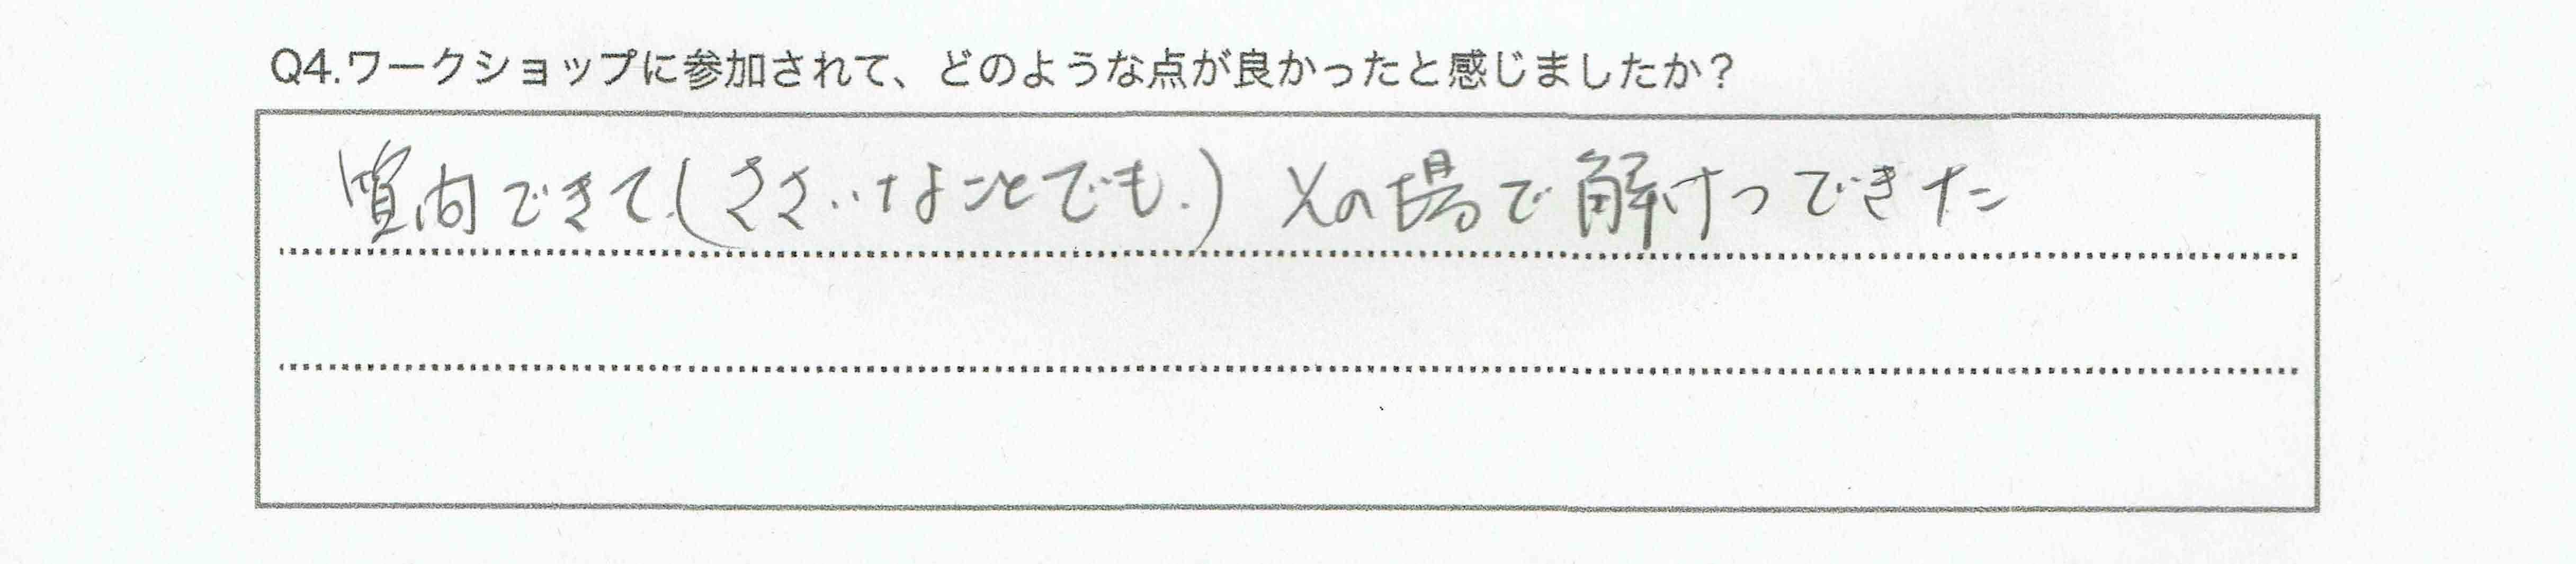 Q4.ワークショップに参加されて、どのような点が良かったと感じましたか？
質内できて(ささいなことでも.) その場で解けつできた